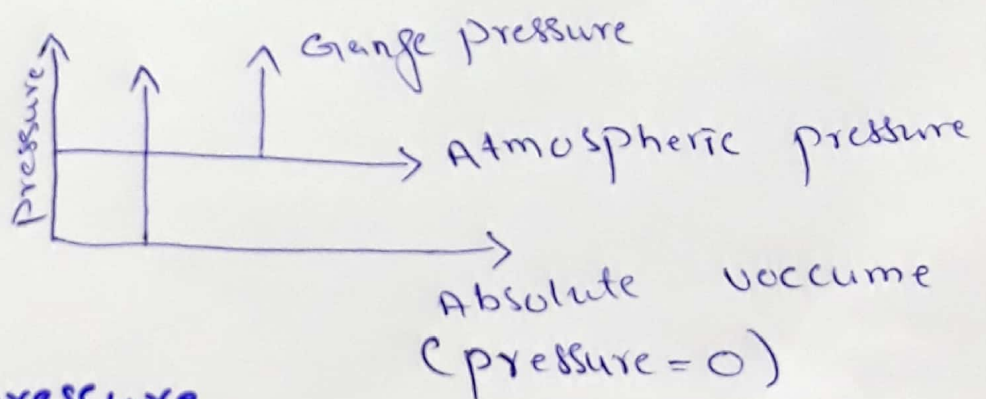 Pressure
Gange pressure
Atmospheric pressure
Absolute voccume
(pressure = 0)